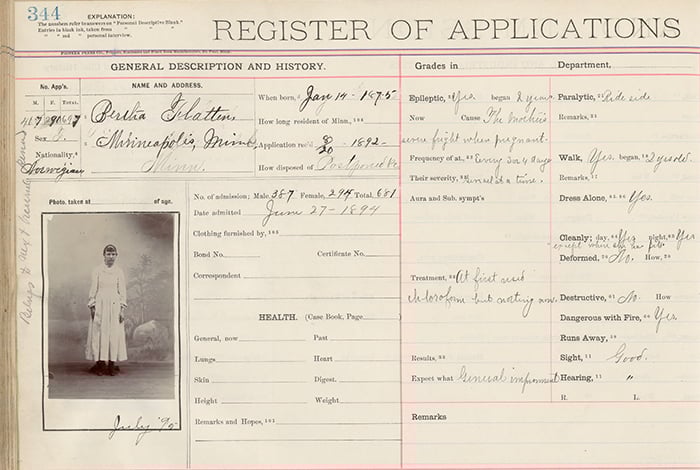 344
EXPLANATION:
The numbers refer to answers on "Personal Descriptive Blank."
Entries in black ink, taken from " " "
" " red " " personal interview.
REGISTER OF APPLICATIONS
GENERAL DESCRIPTION AND HISTORY.
Grades in
Department,
No. App's.
NAME AND ADDRESS.
M. F. Total.
407 290 697
Sex F.
Nationality,
Norwegian
Bertha Flatten
Minneapolis, Minn.
Minn.
When born, Jan 14 - 1875
How long resident of Minn.,
Application rec'd 8/20 - 1892-
How disposed of Postponed
Photo. taken at of age.
July '95
No. of admission; Male, 387 Female, 294 Total, 681
Date admitted June 27 - 1894
Clothing furnished by,
Bond No. Certificate No.
Correspondent
HEALTH. (Case Book, Page )
General, now Past
Lungs Heart
Skin Digest.
Height Weight
Remarks and Hopes,
Epileptic, Yes began 2 years
Now Cause The mother's
severe fright when pregnant.
Frequency of at. Every 3 or 4 days
Their severity, several at a time.
Aura and Sub. sympt's
Treatment, At first used
chloroform but nothing now.
Results,
Expect what General improvment
Paralytic, side
Remarks,
Walk, Yes. began, 2 yrs old.
Remarks,
Dress Alone, Yes.
Cleanly; day, Yes night, Yes
except when in fits
Deformed, No. How,
Destructive, No. How
Dangerous with Fire, Yes.
Runs Away,
Sight, Good.
Hearing, "
R. L.
Remarks